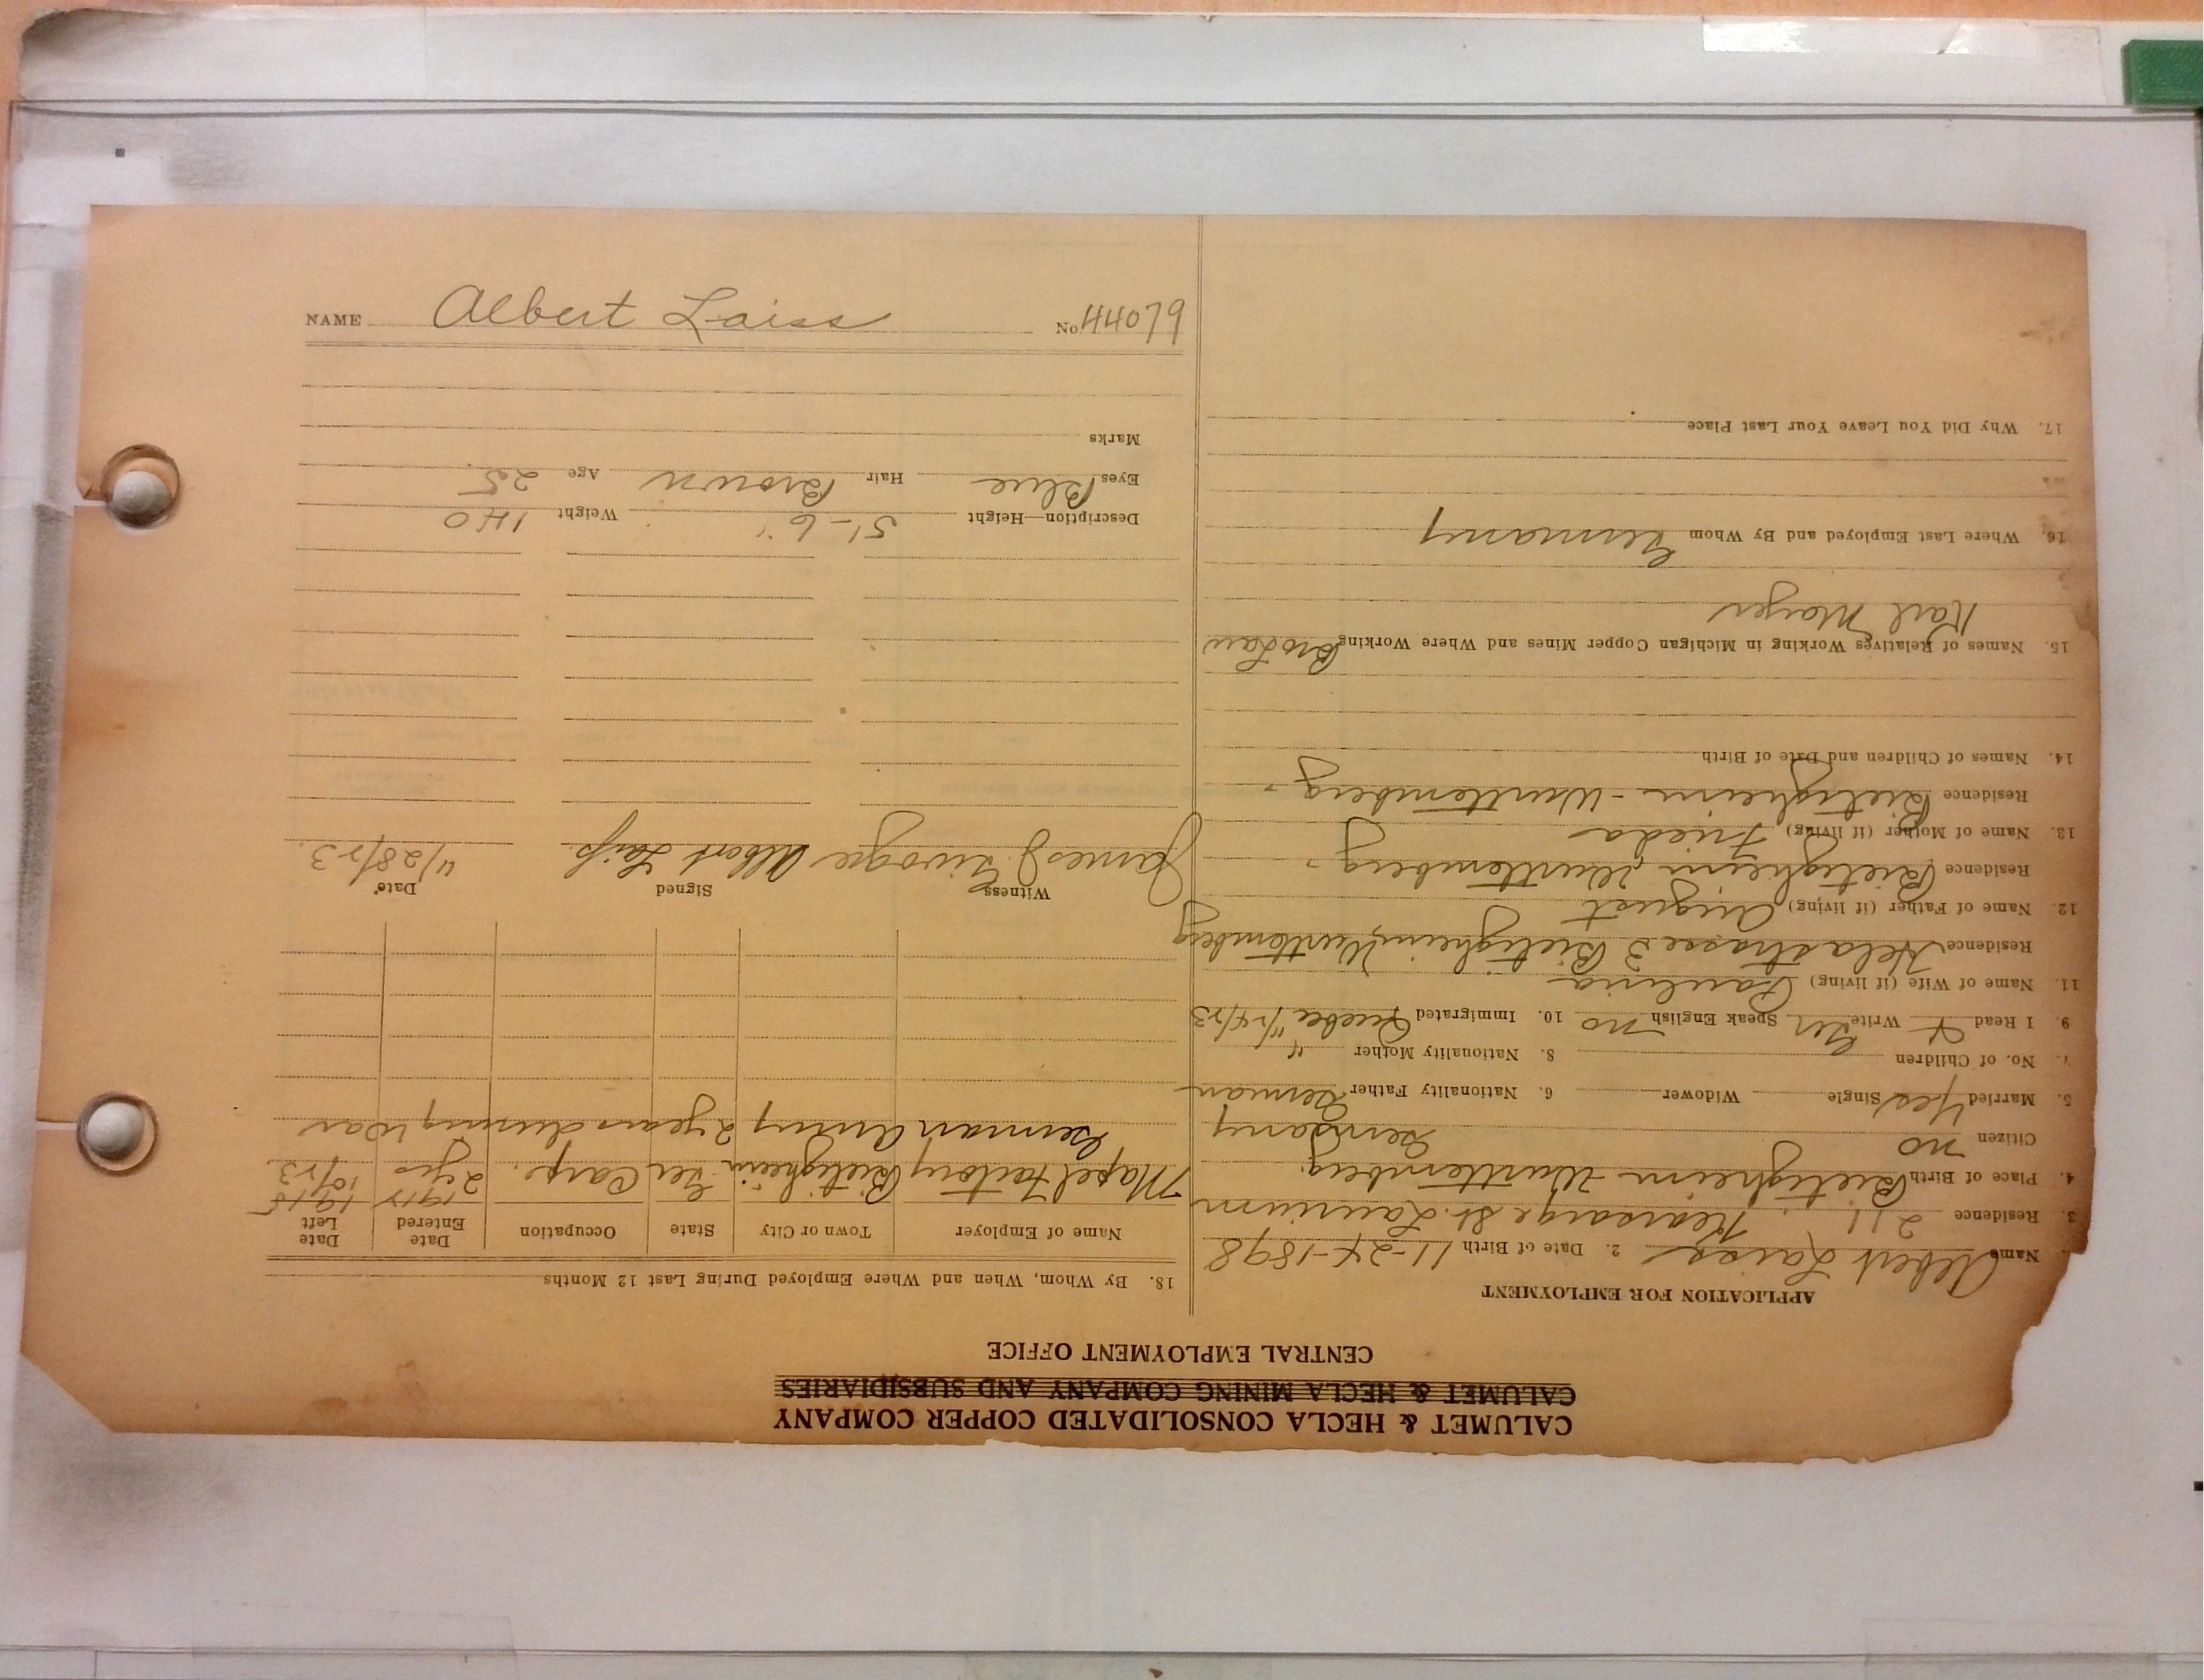 CALUMET & HECLA CONSOLIDATED COPPER COMPANY
CALUMET & HECLA MINING COMPANY AND SUBSIDIARIES
CENTRAL EMPLOYMENT OFFICE
APPLICATION FOR EMPLOYMENT
Name Albert Laiss 2. Date of Birth 11-24-1898
3. Residence 211 Kearsarge St. Laurium
4. Place of Birth Bietigheim - Wurttemberg.
Citizen no Germany
5. Married Yes Single Widower 6. Nationality Father German
7. No. of Children 8. Nationality Mother "
9. I Read & Write Ger Speak English no 10. Immigrated Quebec 11/24/23
11. Name of Wife (if living) Paulina
Residence strasse 3 Bietigheim Wurttemberg
12. Name of Father (if living) August
Residence Bietigheim, Wurttemberg -
13. Name of Mother (if living) Frieda
Residence Bietigheim - Wurttemberg -
14. Names of Children and Date of Birth
15. Names of Relatives Working in Michigan Copper Mines and Where Working Bro Law
Karl Mayer
16. Where Last Employed and By Whom Germany
17. Why Did You Leave Your Last Place
18. By Whom, When and Where Employed During Last 12 Months
Name of Employer Town or City State Occupation Date Entered Date Left
Mapel Factory Bietigheim Ger Carp. 2 yrs 10/23.
German Army 2 years during War
Witness Signed Date
James J. Albert Laiss. 4/28/23.
Description—Height 5'-6" Weight 140
Eyes Blue Hair Brown Age 25
Marks
NAME Albert Laiss No. 44079